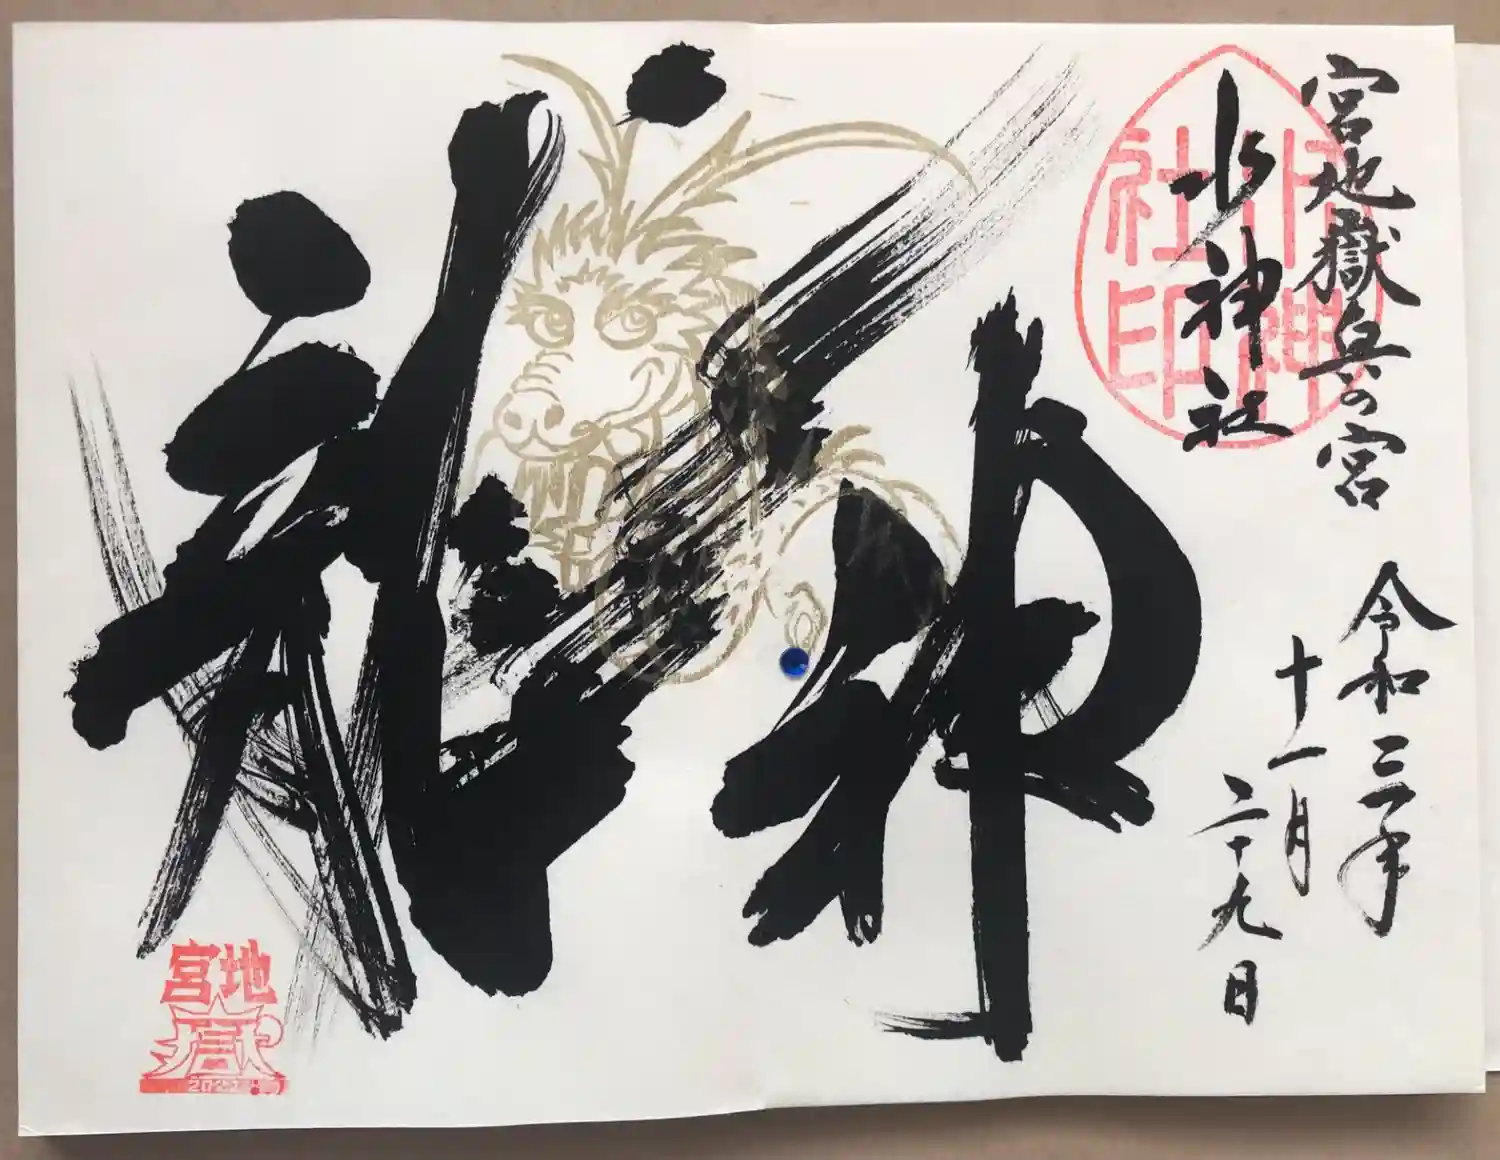 宮地嶽奥の宮
水神社
水神
社印
令和三年
十一月
二十九日
龍神
宮地
嶽